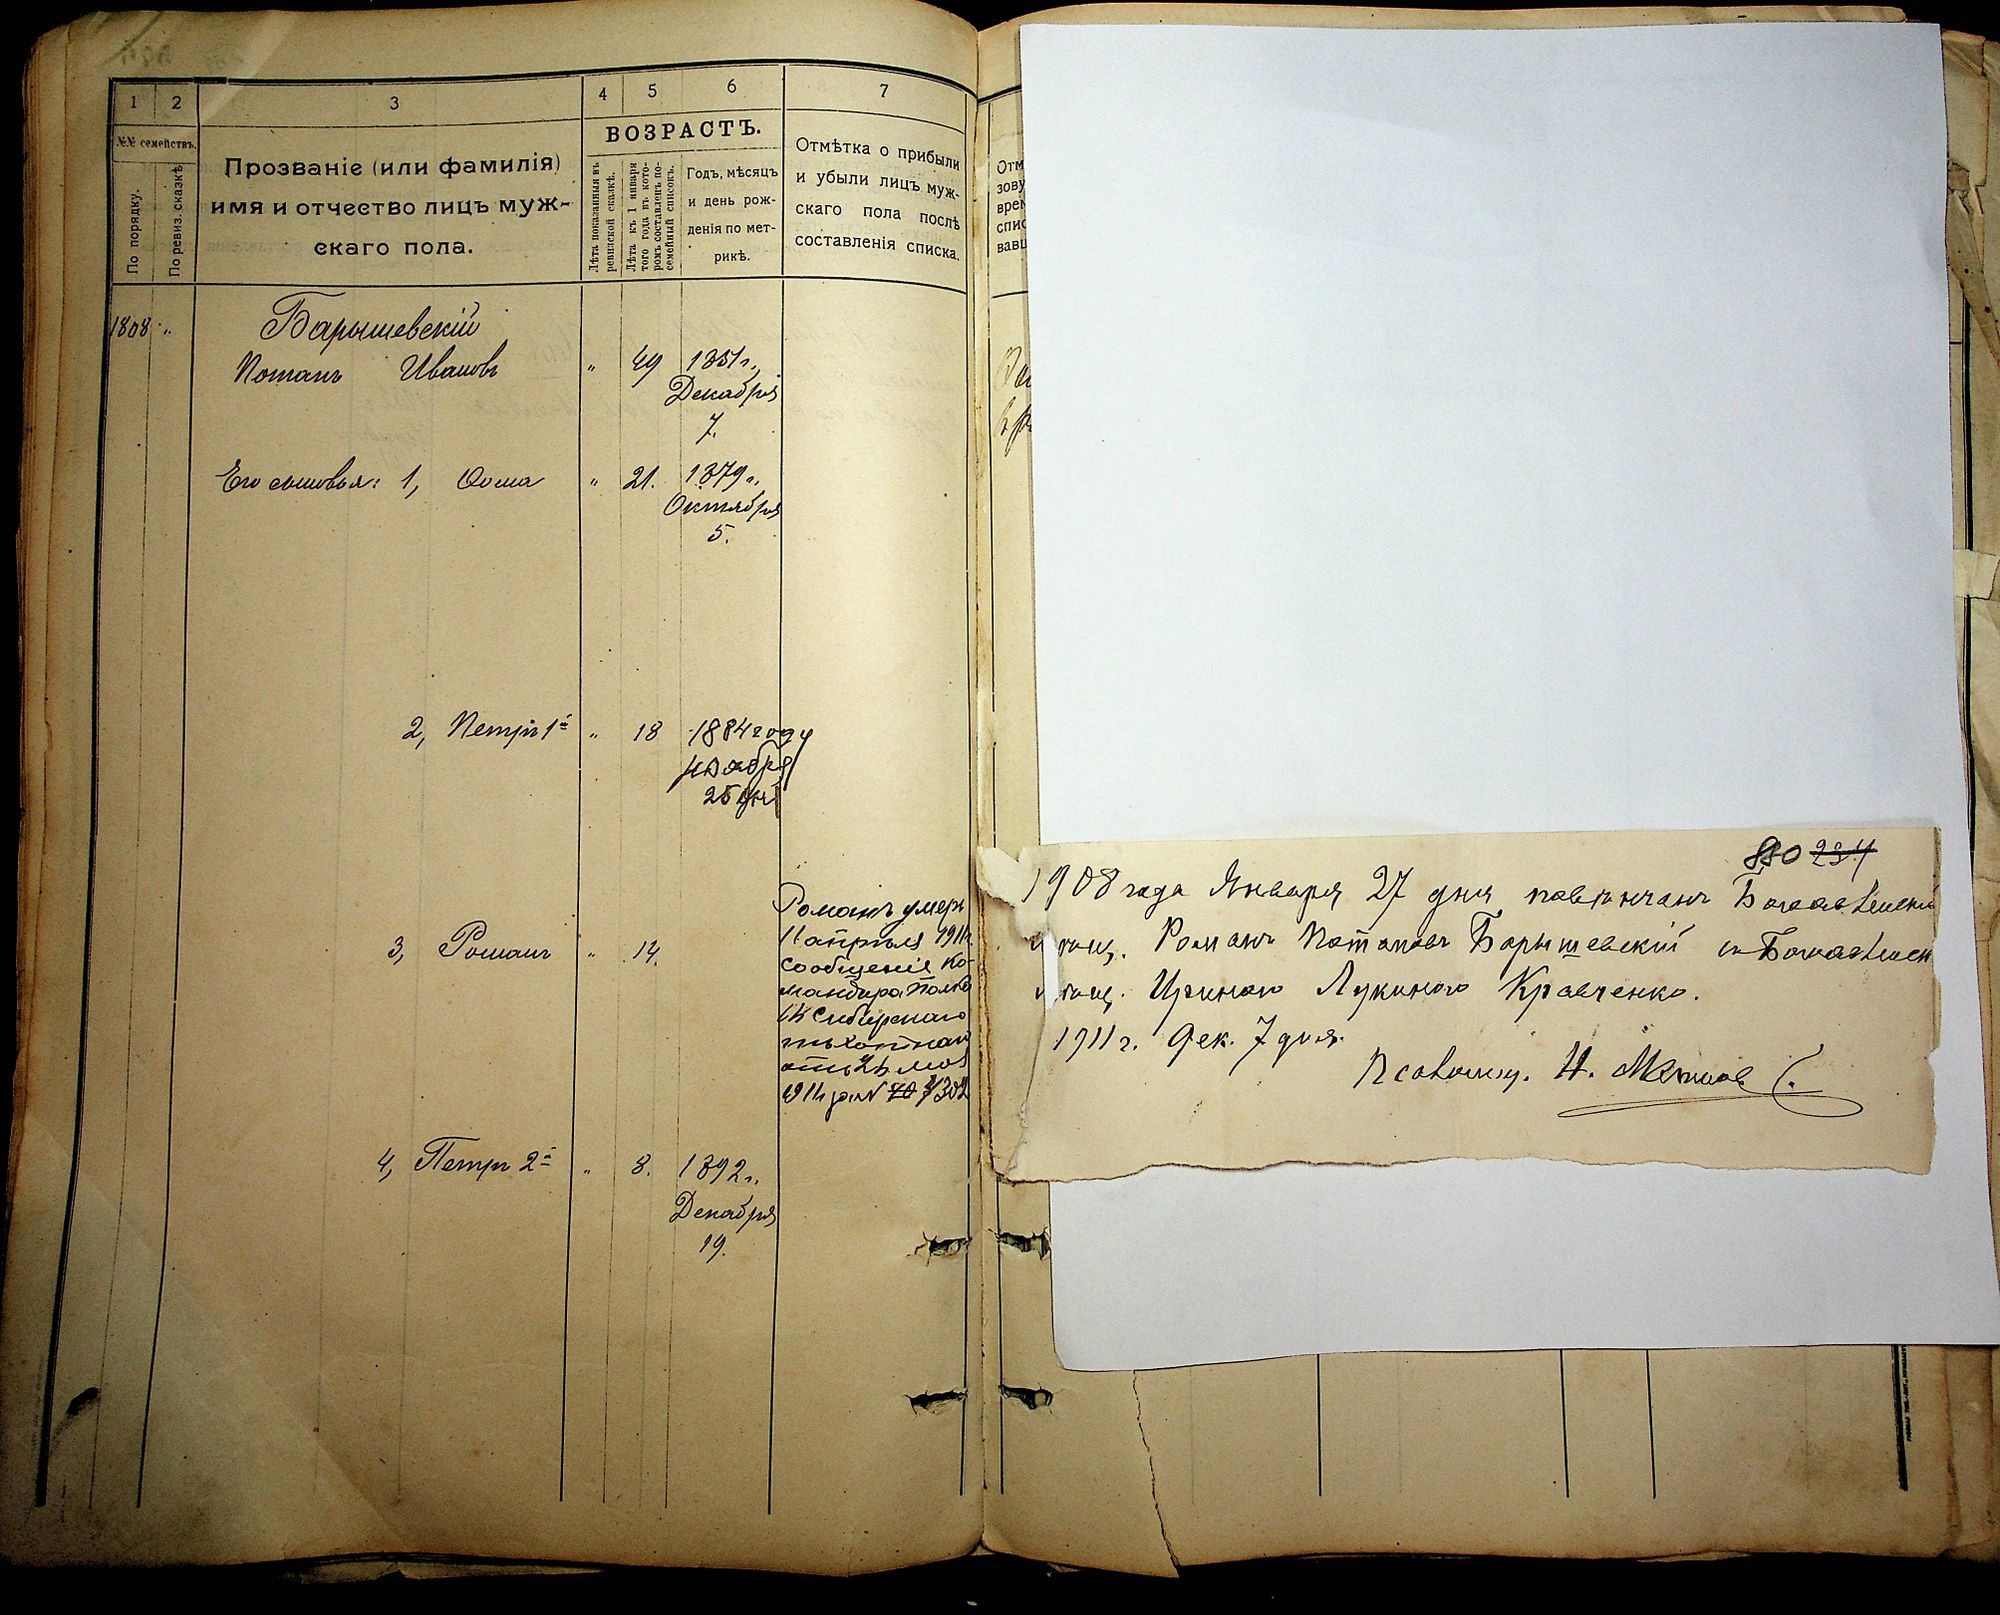 1 2 3 4 5 6 7
№№ семействъ.
По порядку.
По ревиз. сказкѣ
Прозваніе (или фамилія)
имя и отчество лицъ муж-
скаго пола.
ВОЗРАСТЪ.
Лѣта показанныя въ
ревизской сказкѣ.
Лѣта къ 1 января
того года въ кото-
ромъ составленъ по-
семейный списокъ.
Годъ, мѣсяцъ
и день рож-
денія по мет-
рикѣ.
Отмѣтка о прибыли
и убыли лицъ муж-
скаго пола послѣ
составленія списка.
Отм
зову
врем
спис
вавш
1808 „ Барышевскій
Потапъ Ивановъ „ 49 1851 г.,
Декабря
7.
Его сыновья: 1, Ѳома „ 21. 1879 г.,
Октября
5.
2, Петръ 1й „ 18 1884 году
ноября
25 дня
3, Романъ „ 14.
Романъ умеръ
11 апрѣля 1911 г.
сообщенія ко-
мандира полка
Сибирскаго
пѣхотнаго
отъ 24 мая
1911 за N 70 7302
4, Петръ 2й „ 8. 1892 г.,
Декабря
19.
880 234
1908 года Января 27 дня повѣнчанъ
Романъ Потаповъ Барышевскій съ
Ириною Лукиною Кравченко.
1911 г. Дек. 7 дня.
Псаломщ. И.